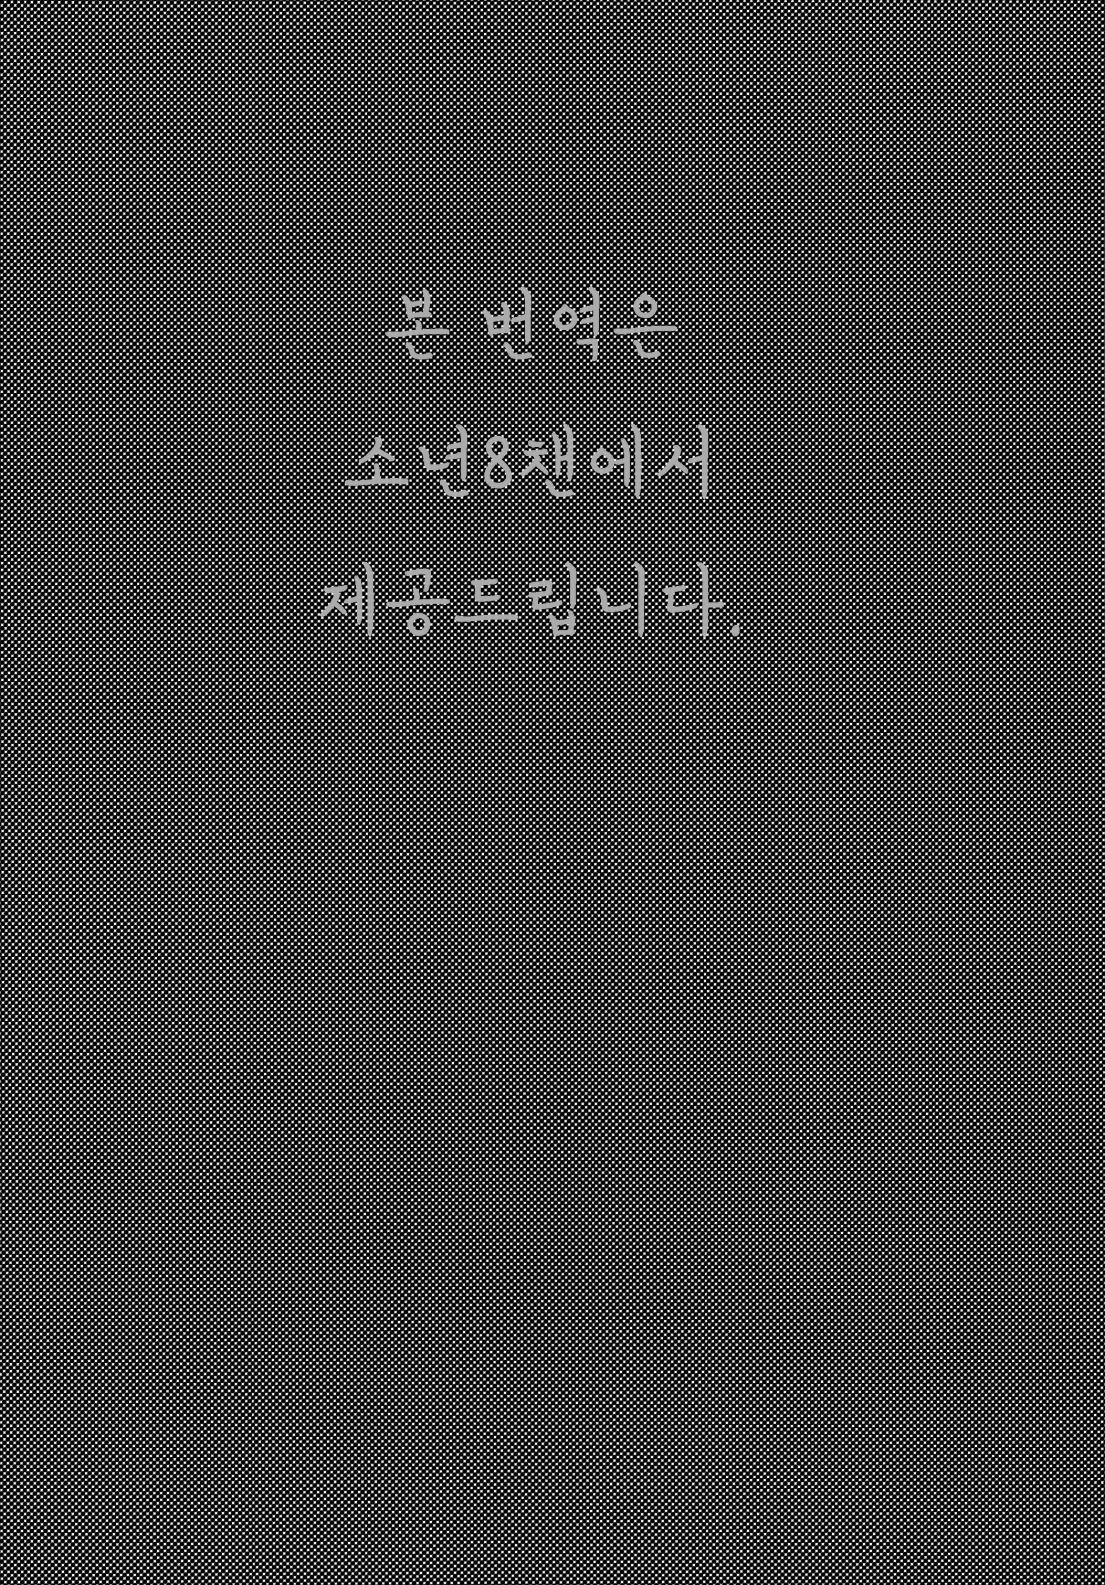 본 번역은
소년8챈에서
제공드립니다.